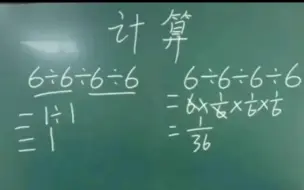 计算
6÷6÷6÷6
=1÷1
=1
6÷6÷6÷6
=6×1/6×1/6×1/6
=1/36